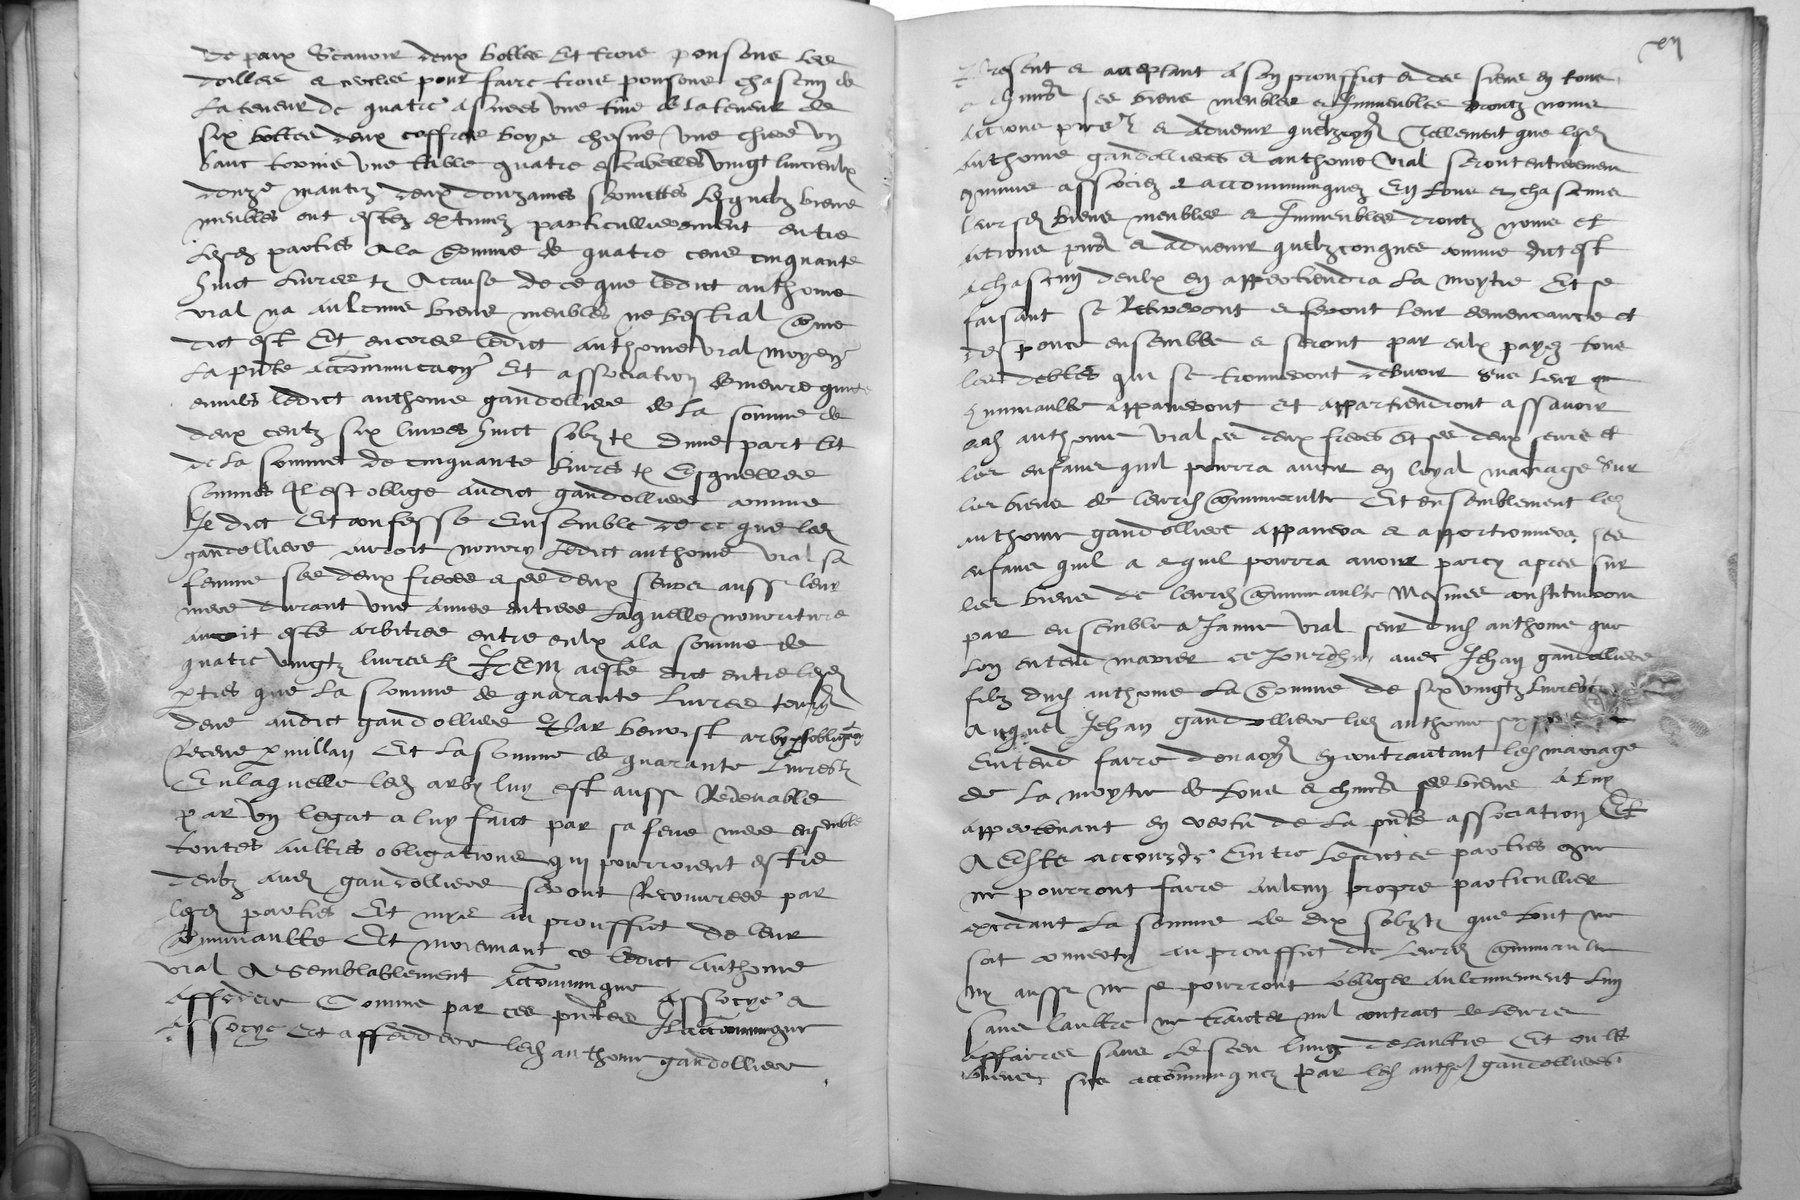 de paix Scavoir deux bottes Et trois ponsons les
doilles & cercles pour faire trois ponsons chascun de
La teneur de quatre asnees une tine de la teneur de
six bottes deux coffres boys chesne une chiere ung
banc torme une table quatre escabelles vingt linceulx
douze mantiz deux douzaines serviettes Lesquelz biens
meubles ont estez extimez particullierement entre
Lesd parties A la somme de quatre cens cinquante
huict Livres tz A cause de ce que ledict anthoine
vial na aulcuns biens meubles ne bestial comme
dict est Et encores ledict anthoine vial moyenn
La pnte accommunaon Et association demeure quicte
envers ledict anthoine gandolliere de la somme de
deux centz six livres huict solz tz dune part Et
de la somme de cinquante livres tz Esquelles
sommes Il est oblige audict gandolliere comme
Il dict Et confesse Ensemble de ce que led
gandolliere auroit nourry Ledict anthoine vial sa
femme ses deux freres & ses deux seurs aussi leur
mere durant une annee entiere Laquelle nourriture
auroit este arbitree entre eulx a la somme de
quatre vingtz livres tz ITEM a este dict entre lesd
pties que la somme de quarante Livres tourn
deue audict gandolliere Par benoist arby p obligaon
Receue p millan Et la somme de quarante Livres tz
En laquelle led arby luy est aussi Redevable
Par ung legat a luy faict par sa feue mere ensemble
toutes aultres obligations qui pourroient estre
deubz aud gandolliere seront Recouvrees par
lesd parties Et mys au prouffict de leur
communaulte Et moienant ce ledict Anthoine
vial A semblablement accommunque Associe &
affedere Comme par ces pntes Il accommunque
associe Et affeddere led anthoine gandolliere
xij
Present & acceptant a son prouffict & des siens en tous
& chuns ses biens meubles & Immeubles droitz noms
actions pns & advenir quelzconq Tellement que lesd
anthoine gandollieres & anthoine vial seront entierement
comme associez & accommunquez En tous & chascuns
leursd biens meubles & Immeubles droitz noms et
actions pns & advenir quelzconques comme dict est
a chascun deulx en appertiendra La moytie Et se
faisant se Retireront & feront leur demourance et
despence ensemble & seront par eulx payez tous
les debtes qui se trouveront debvoir sus leur
communaulte appaneront Et appartiendront assavoir
led anthoine vial ses deux freres Et ses deux seurs et
les enfans quil pourra avoir en loyal mariage sur
les biens de leurd communaulte Et ensemblement led
anthoine gandolliere appanera & apportionnera ses
enfans quil a & quil pourra avoir par cy apres sur
les biens de leurd communaulte Mesmes constitueront
par ensemble a Janne vial seur dud anthoine que
Lon entend marier ce Jourdhuy avec Jehan gandolliere
filz dud anthoine La somme de six vingtz Livres tz
Auquel Jehan gandolliere led anthoine son pere
Entend faire donaon en contractant led mariage
de la moytie de tous & chuns ses biens a luy
appertenant en vertu de la pnte association Et
A Este accourde Entre Lesdictes parties que
ne pourront faire aulcun propre particullier
excedant La somme de dix solz tz que tout ne
soit converty au prouffict de leurd communaulte
ny aussi ne se pourront obliger aulcunement Lun
sans laultre ne traicter nul contract de leurs
affaires sans Le sceu lung de laultre Et oultre
biens sus accommunquez par led anthoine gandollieres